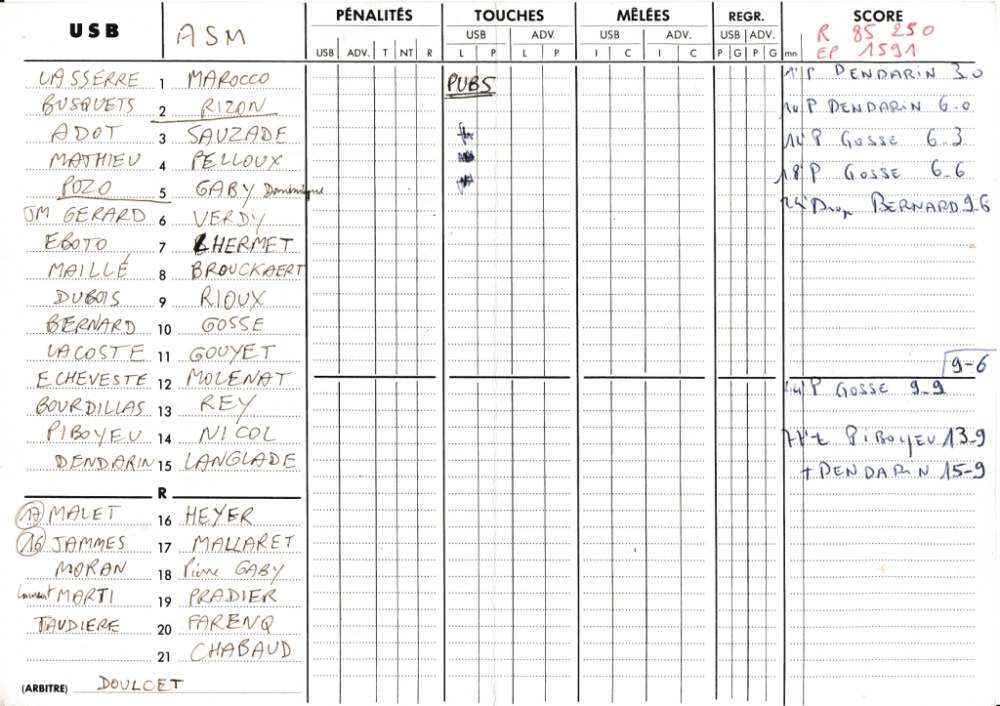 USB ASM PÉNALITÉS TOUCHES MÊLÉES REGR. SCORE
USB ADV. USB ADV. USB ADV. R 85 250
USB ADV. T NT R L P L P I C I C P G P G mn EP 1591
LASSERRE 1 MAROCCO PUBS P DENDARIN 3.0
BUSQUETS 2 RIZON P DENDARIN 6-0
ADOT 3 SAUZADE P GOSSE 6-3
MATHIEU 4 PELLOUX 18' P GOSSE 6-6
POZO 5 GABY Dominique Drop BERNARD 9 6
JM GERARD 6 VERDY
EBOTO 7 LHERMET
MAILLÉ 8 BROUCKAERT
DUBOIS 9 RIOUX
BERNARD 10 GOSSE
LACOSTE 11 GOUYET 9-6
ECHEVESTE 12 MOLENAT P GOSSE 9-9
BOURDILLAS 13 REY
PIBOYEU 14 NICOL 77' t PIBOYEU 13-9
DENDARIN 15 LANGLADE + DENDARIN 15-9
R
17 MALET 16 HEYER
16 JAMMES 17 MALLARET
MORAN 18 Pierre GABY
Laurent MARTI 19 PRADIER
TAUDIERE 20 FARENQ
21 CHABAUD
(ARBITRE) DOULCET